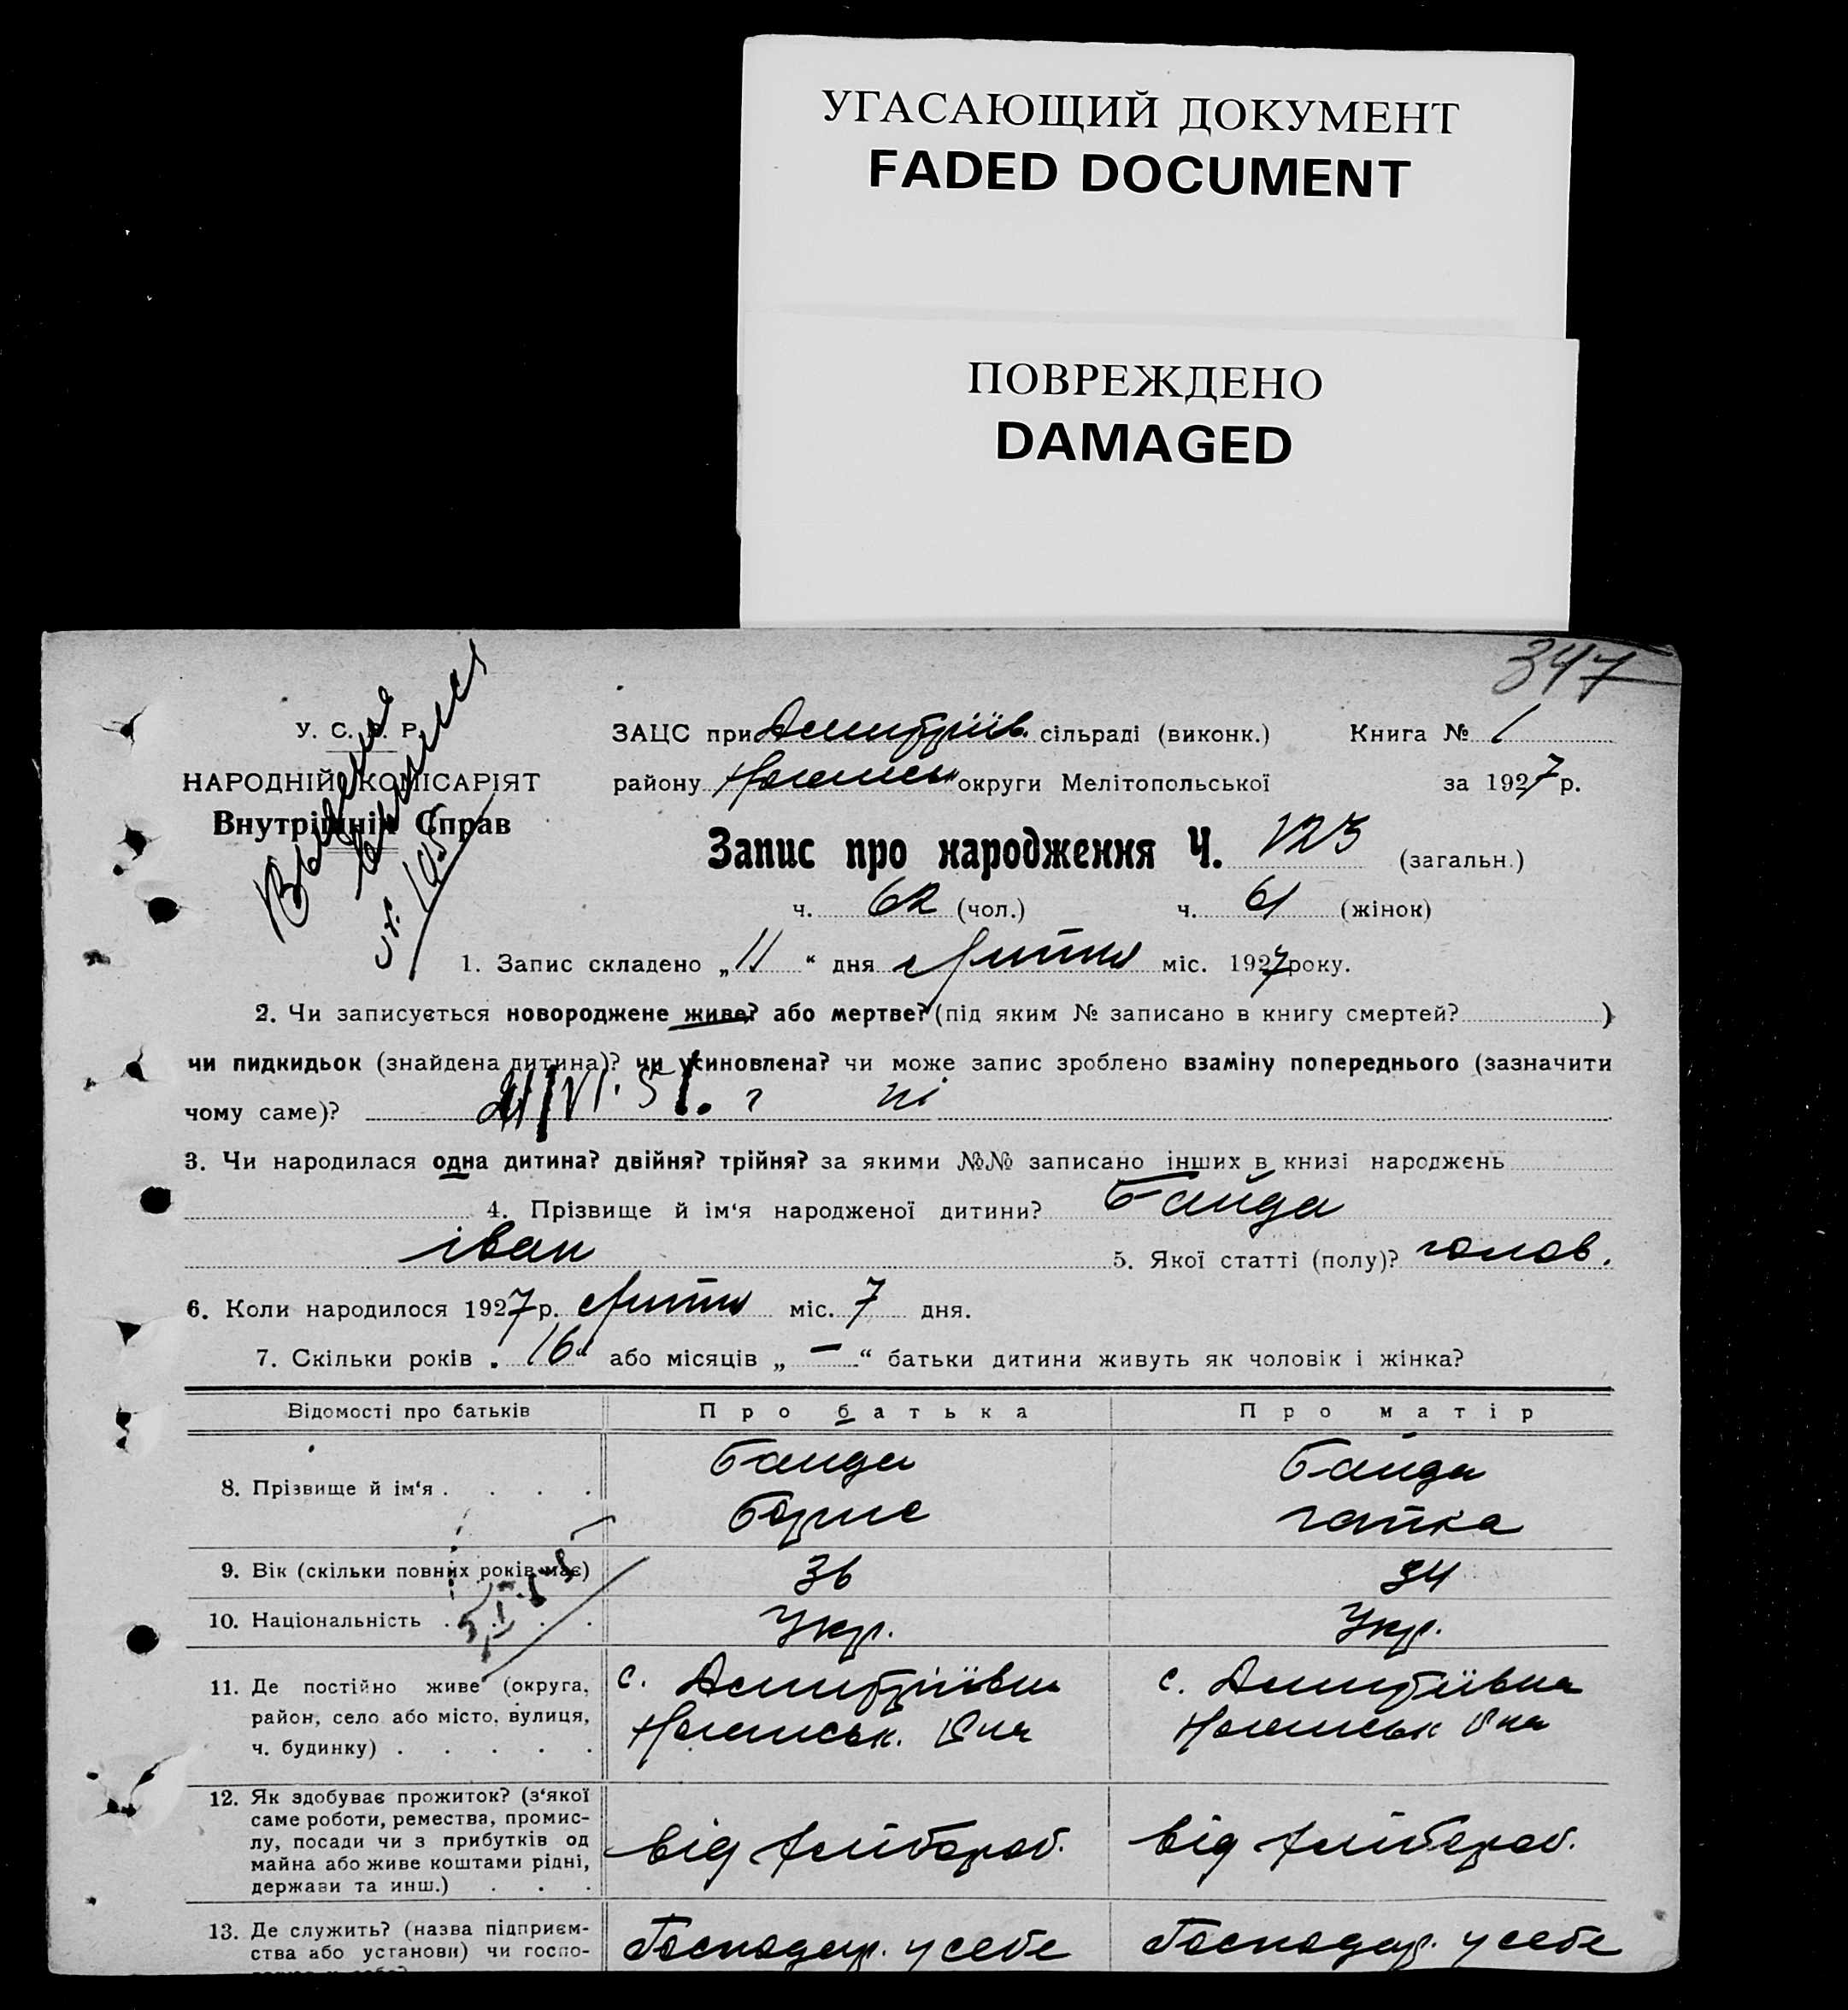 УГАСАЮЩИЙ ДОКУМЕНТ
FADED DOCUMENT
ПОВРЕЖДЕНО
DAMAGED
347
У. С. Р. Р.
НАРОДНІЙ КОМІСАРІЯТ
Внутрішніх Справ
ЗАЦС при Дмитріїв. сільраді (виконк.) Книга № 1
району Ногайськ округи Мелітопольської за 1927 р.
Запис про народження Ч. 123 (загальн.)
ч. 62 (чол.) ч. 61 (жінок)
1. Запис складено „11“ дня Лютня міс. 1927 року.
2. Чи записується новороджене живе? або мертве? (під яким № записано в книгу смертей? )
чи пидкидьок (знайдена дитина)? чи усиновлена? чи може запис зроблено взаміну попереднього (зазначити
чому саме)? ні
3. Чи народилася одна дитина? двійня? трійня? за якими №№ записано інших в книзі народжень
4. Прізвище й ім‘я народженої дитини? Байда
іван 5. Якої статті (полу)? чолов.
6. Коли народилося 1927 р. Лютня міс. 7 дня.
7. Скільки років „16“ або місяців „ — “ батьки дитини живуть як чоловік і жінка?
Відомості про батьків Про батька Про матір
8. Прізвище й ім‘я . . . . Байда Борис Байда
9. Вік (скільки повних років має) 36 34
10. Національність . . . . Укр. Укр.
11. Де постійно живе (округа, с. Дмитріївка с. Дмитріївка
район, село або місто, вулиця, Ногайськ. Р на Ногайськ Р на
ч. будинку) . . . . .
12. Як здобуває прожиток? (з‘якої
саме роботи, ремества, промис-
лу, посади чи з прибутків од
майна або живе коштами рідні, від хлібороб. від хлібороб.
держави та инш.) . . .
13. Де служить? (назва підприєм-
ства або установи) чи госпо- Господар. у себе Господар. у себе